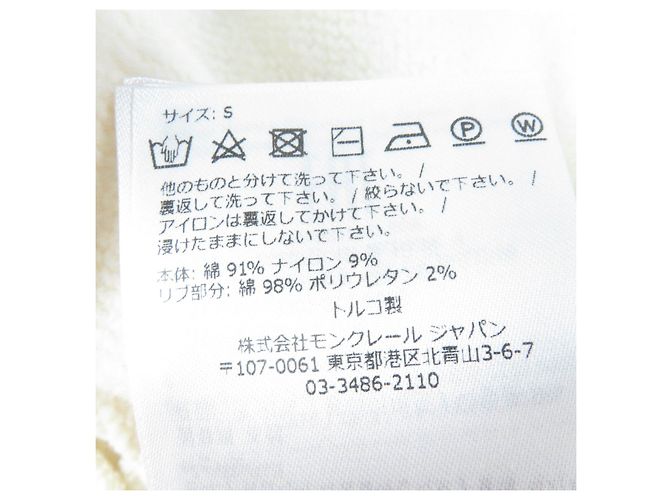 サイズ: S
P W
他のものと分けて洗って下さい。 /
裏返して洗って下さい。 / 絞らないで下さい。 /
アイロンは裏返してかけて下さい。 /
浸けたままにしないで下さい。
本体: 綿 91% ナイロン 9%
リブ部分: 綿 98% ポリウレタン 2%
トルコ製
株式会社モンクレール ジャパン
〒107-0061 東京都港区北青山3-6-7
03-3486-2110